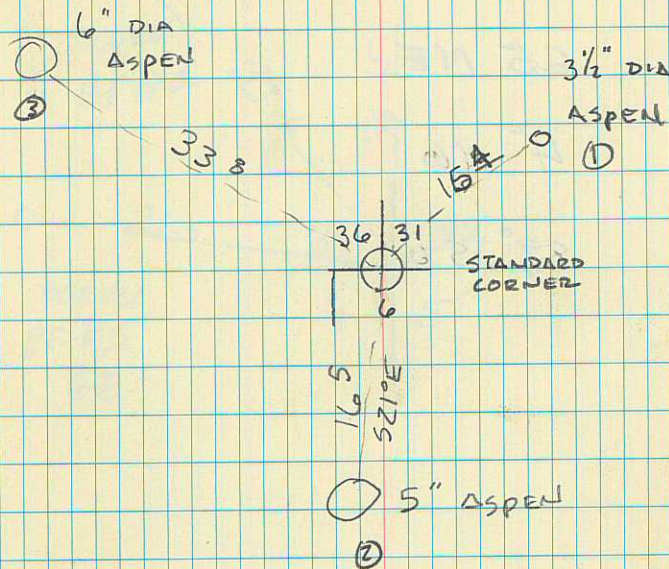 6" DIA
ASPEN
③
33 8
3½" DIA
ASPEN
①
36 31
STANDARD
CORNER
6
16 5
S21°E
5" ASPEN
②